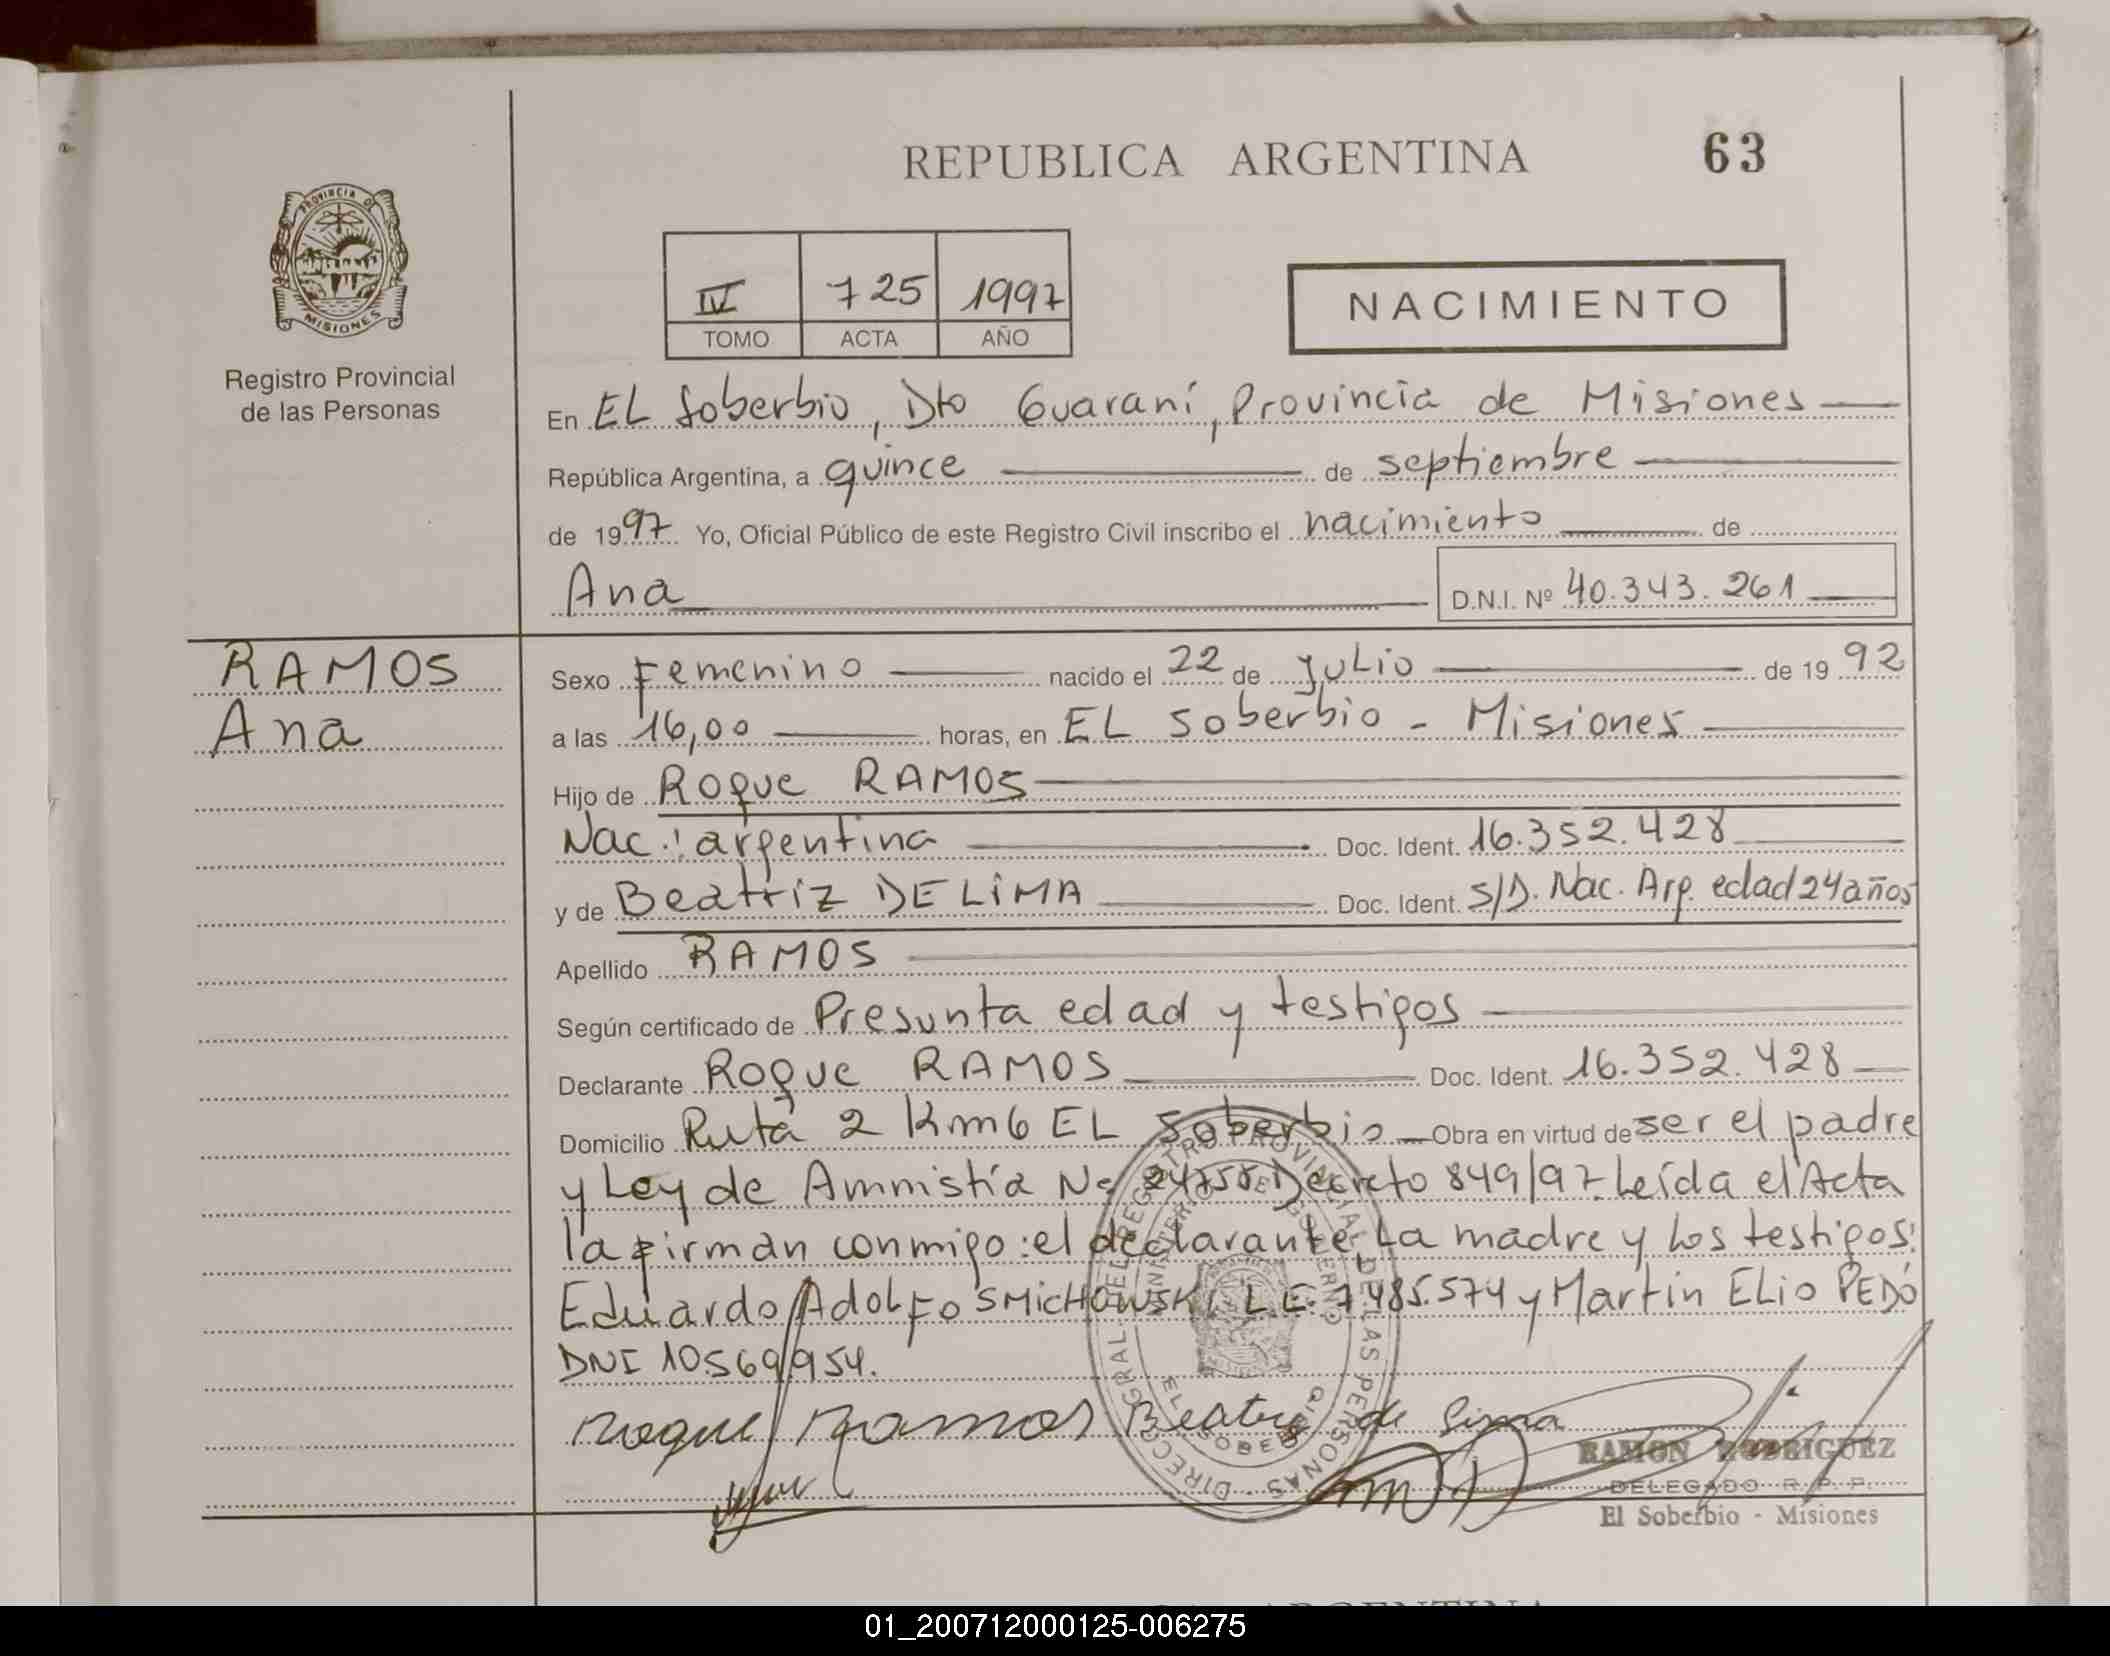 REPUBLICA ARGENTINA
63
PROVINCIA DE
MISIONES
Registro Provincial
de las Personas
IV 725 1997
TOMO ACTA AÑO
NACIMIENTO
En EL Soberbio, Dto Guaraní, Provincia de Misiones
República Argentina, a quince de septiembre
de 1997 Yo, Oficial Público de este Registro Civil inscribo el nacimiento de
Ana D.N.I. Nº 40.343.261
RAMOS
Ana
Sexo Femenino nacido el 22 de Julio de 1992
a las 16,00 horas, en EL Soberbio - Misiones
Hijo de Roque RAMOS
Nac.: argentina Doc. Ident. 16.352.428
y de Beatriz DE LIMA Doc. Ident. S/D. Nac. Arg. edad 24 años
Apellido RAMOS
Según certificado de Presunta edad y testigos
Declarante Roque RAMOS Doc. Ident. 16.352.428
Domicilio Ruta 2 Km 6 EL Soberbio Obra en virtud de ser el padre
y Ley de Amnistía Nº 24755 Decreto 849/97. Leída el Acta
la firman conmigo: el declarante, La madre y Los testigos:
Eduardo Adolfo SMICHOWSKI L.E. 7.485.574 y Martin ELio PEDÓ
DNI 10.569.954.
Roque Ramos Beatriz de Lima
DIRECC. GRAL. DEL REGISTRO PROVINCIAL DE LAS PERSONAS
MINISTERIO DE GOBIERNO
EL SOBERBIO
RAMON RODRIGUEZ
DELEGADO R. P. P.
El Soberbio - Misiones
ARGENTINA
01_200712000125-006275